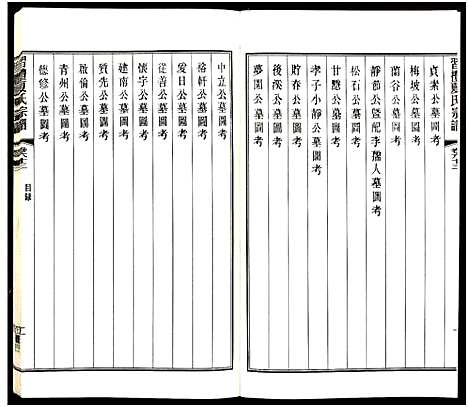 氏宗譜
卷六十三
貞素公墓圖考
梅坡公墓圖考
蘭谷公墓圖考
靜節公暨配李孺人墓圖考
松石公墓圖考
甘艷公墓圖考
孝子小靜公墓圖考
貯春公墓圖考
後溪公墓圖考
夢園公墓圖考
中立公墓圖考
裕軒公墓圖考
愛日公墓圖考
從善公墓圖考
懷宇公墓圖考
建南公墓圖考
質先公墓圖考
啟倫公墓圖考
青州公墓圖考
德修公墓圖考
氏宗譜
目錄